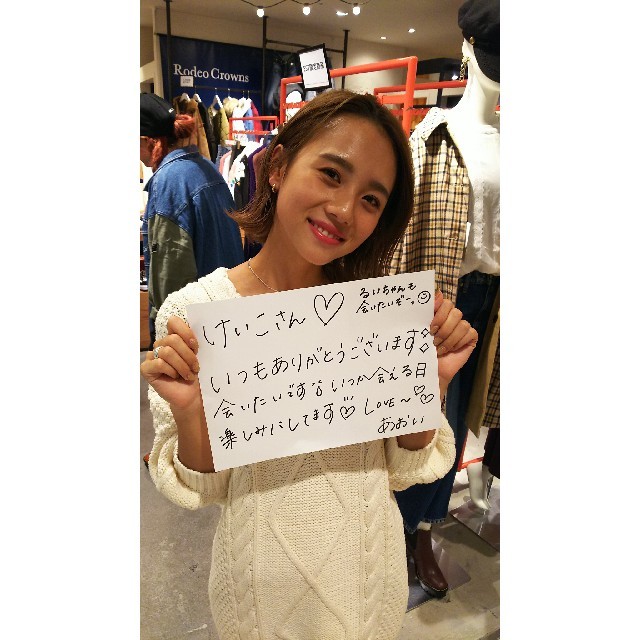 Rodeo Crowns
けいこさん♡
るいちゃんも
会いたいぞー。☺
いつもありがとうございます
会いたいですね いつか会える日
楽しみにしてます♡ LOVE〜♡♡
あおい